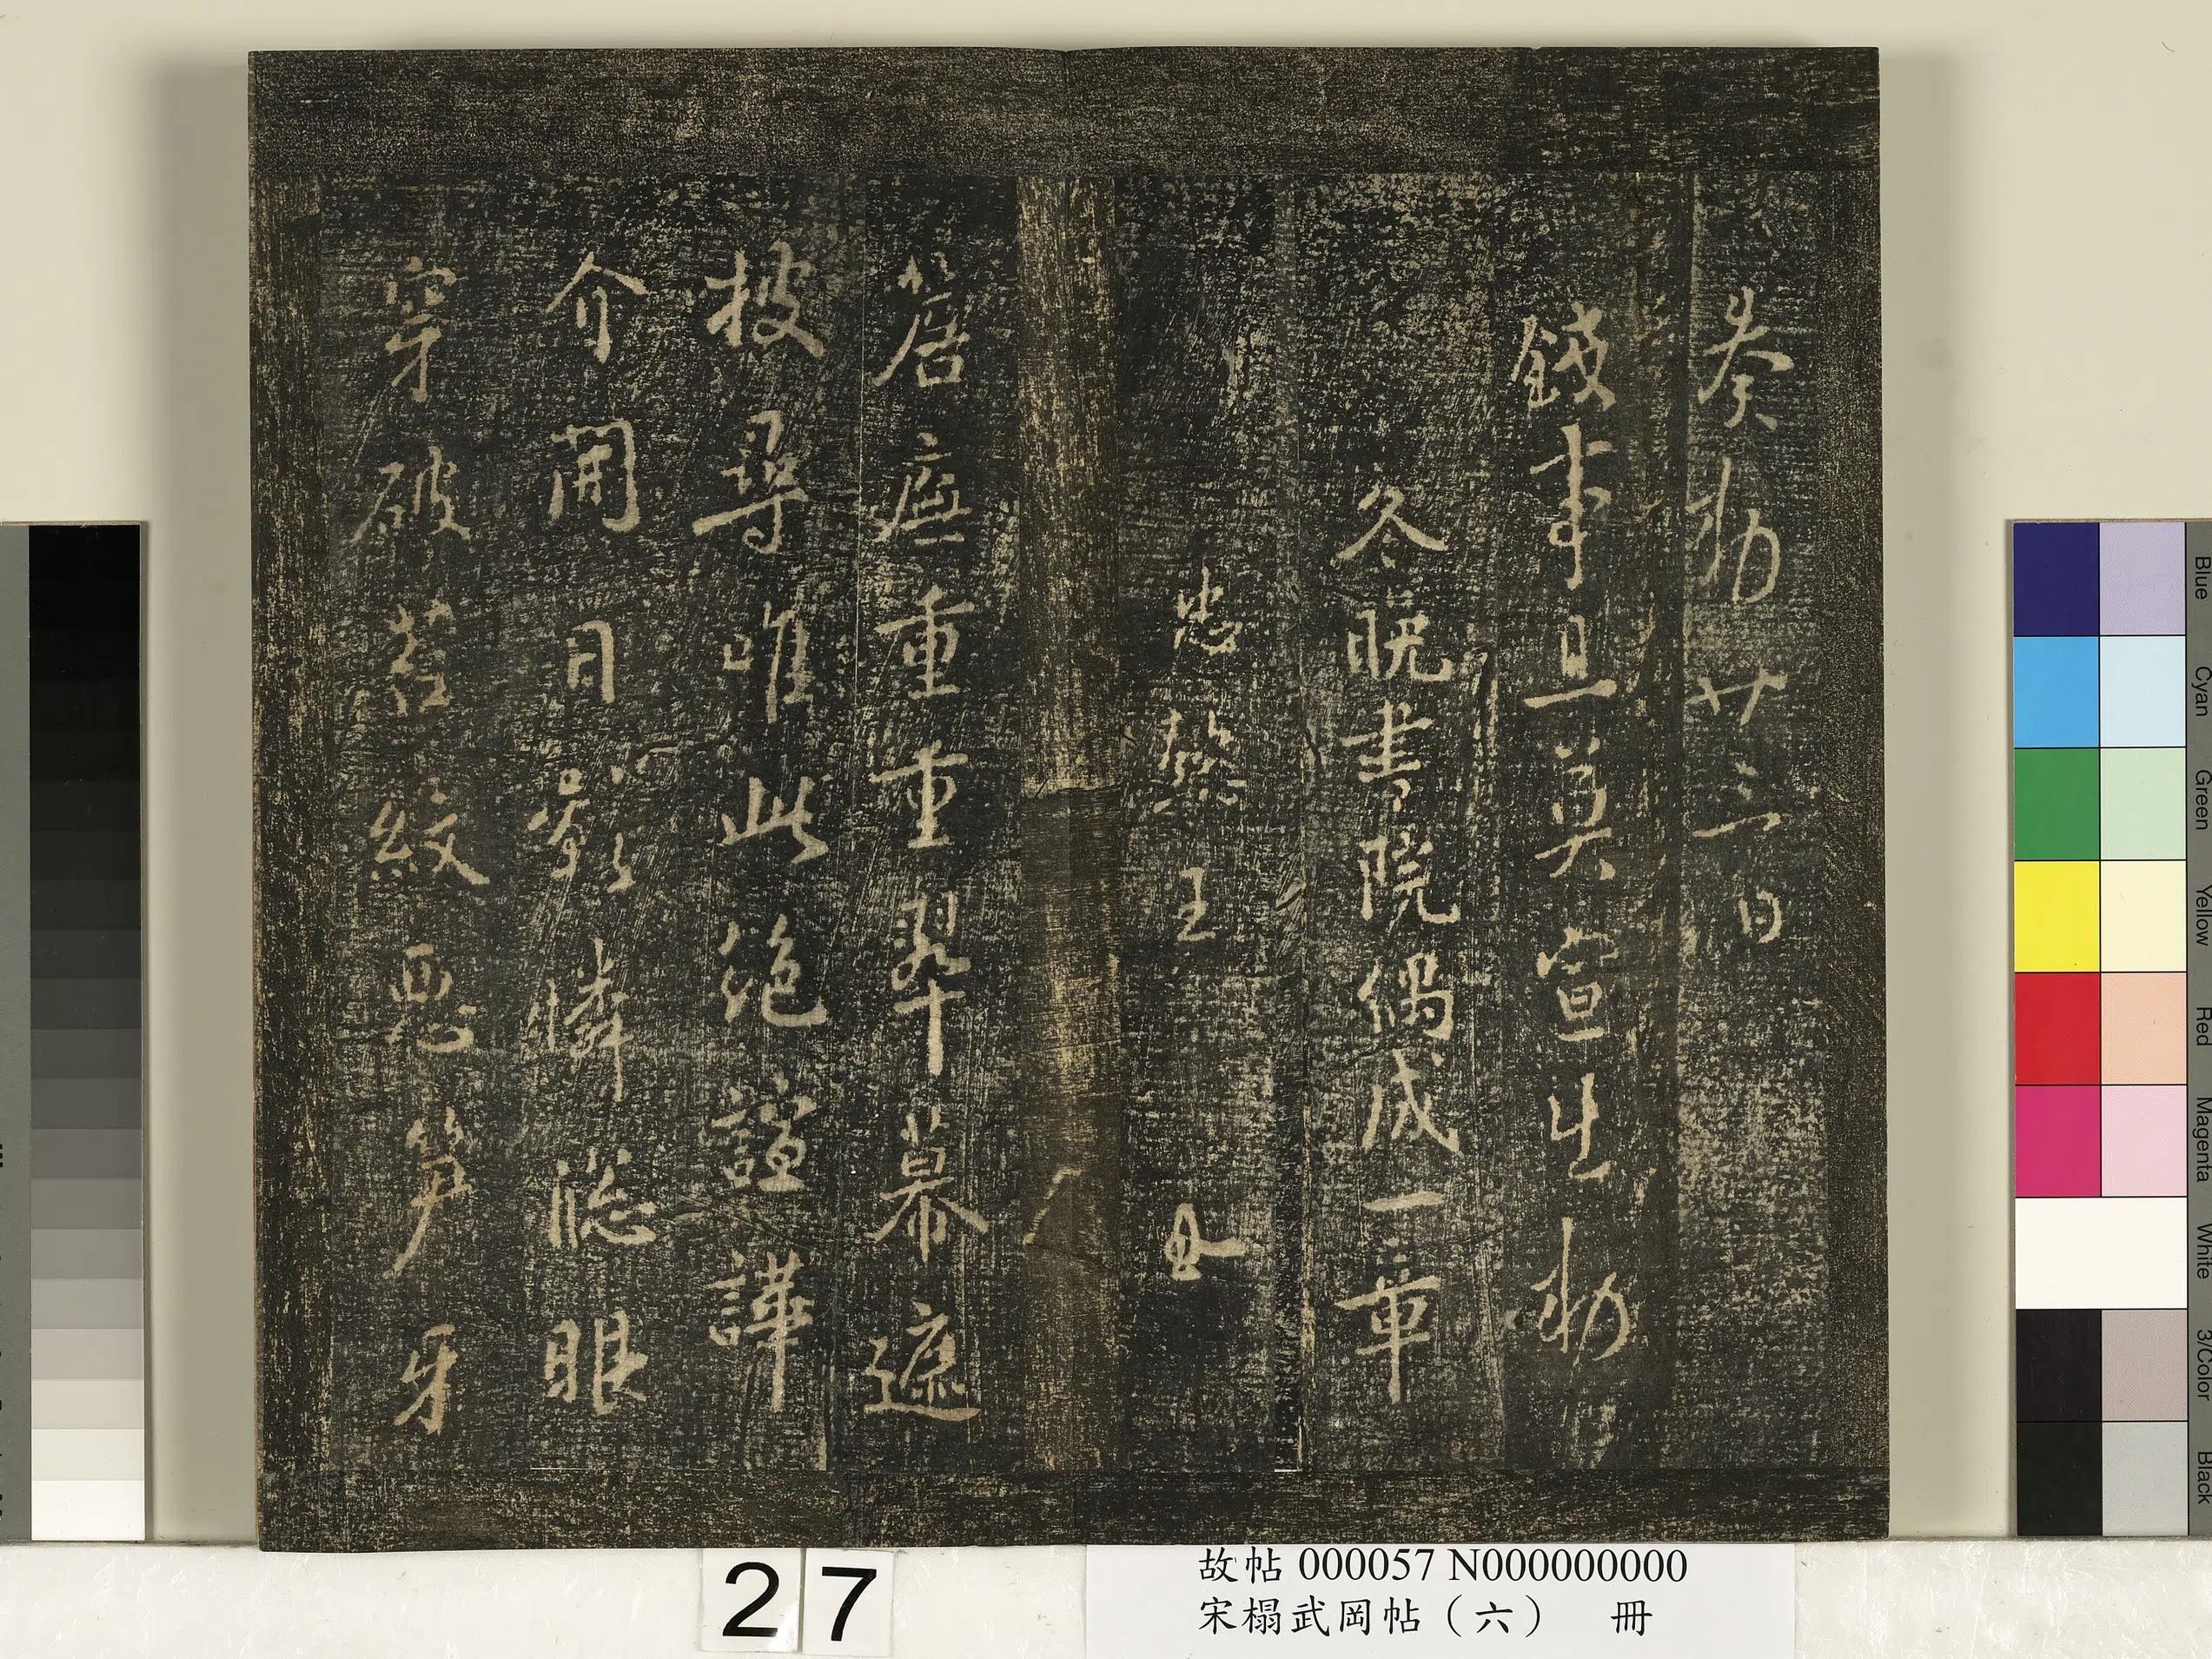 奏勑廿三日
事旦莫宣生勑
冬晚書院偶成一章
忠懿王
簷廡重重翠幕遮
披尋唯此絕諠譁
介開日影憐牎眼
穿破苔紋惡笋牙
27
故帖 000057 N000000000
宋榻武岡帖（六） 冊
Blue
Cyan
Green
Yellow
Red
Magenta
White
3/Color
Black